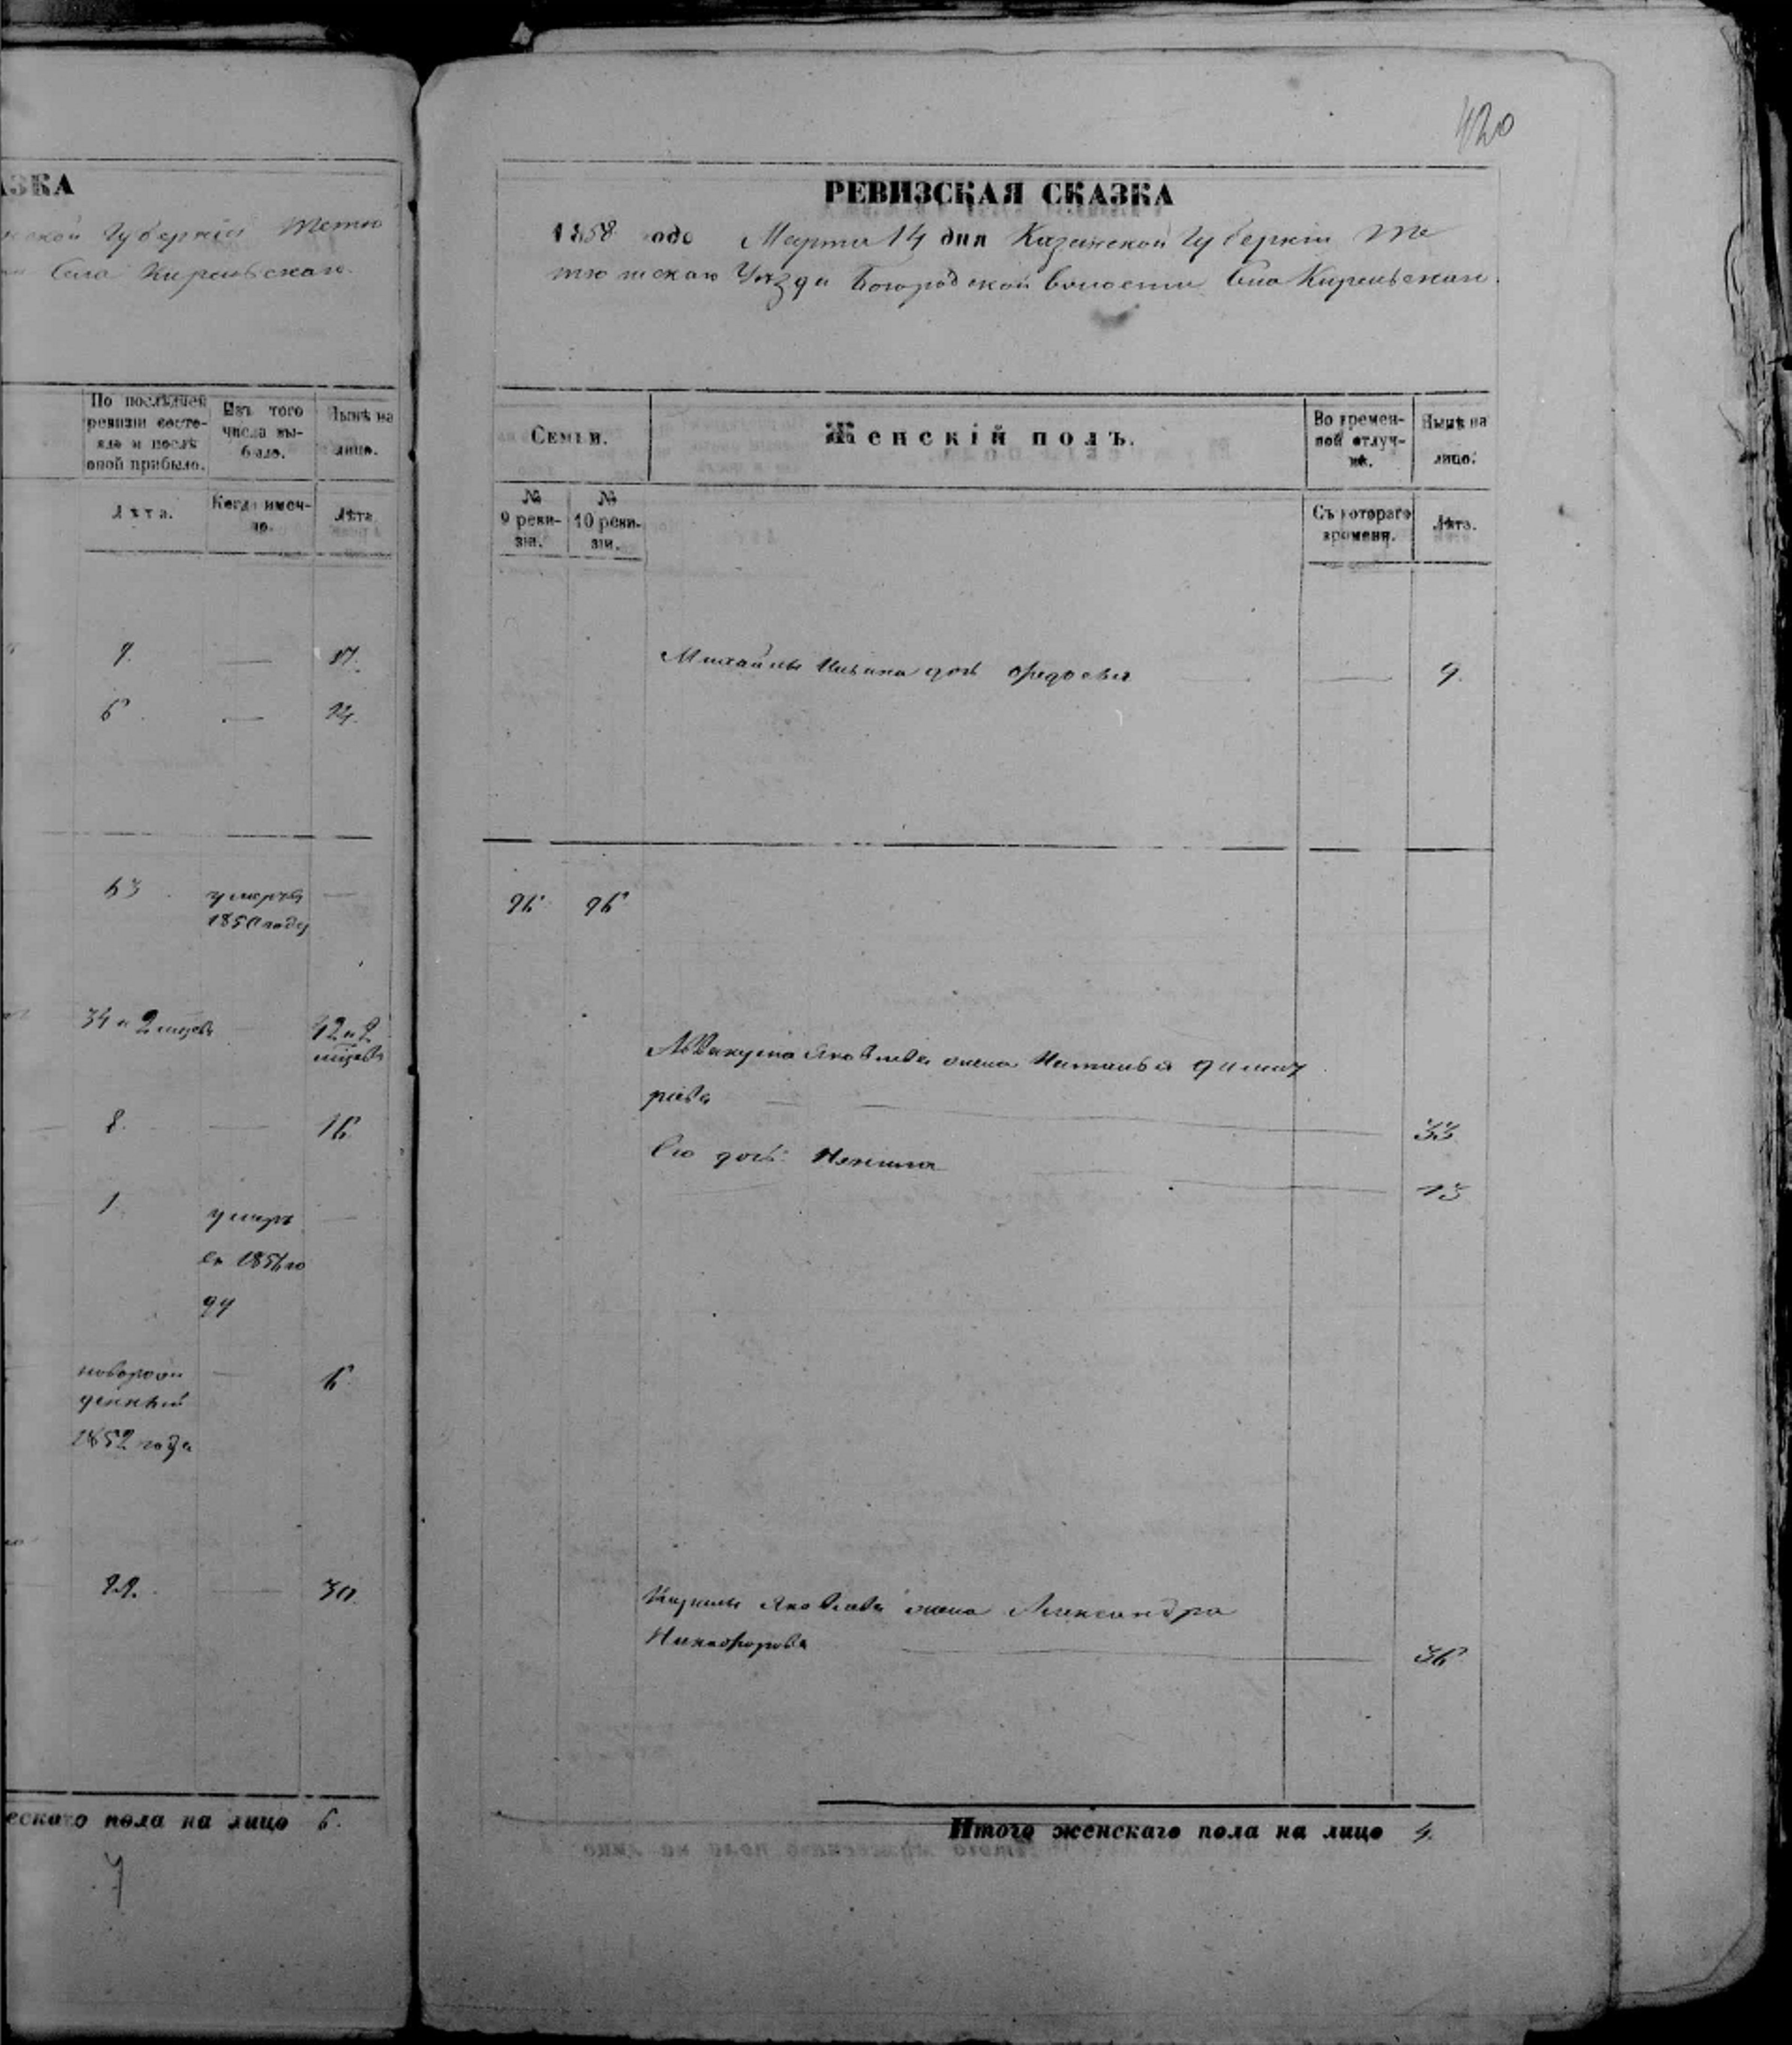 АЗКА
ской Губерніи Тетю
Села Кирельскаго
По послѣдней ревизіи состояло и послѣ оной прибыло.
Изъ того числа выбыло.
Нынѣ на лицо.
Лѣта.
Когда именно.
Лѣта
9. — 17.
6 — 14.
63 умерт —
1850 году
34 и 2 месяца — 42 и 2
месяца
8. — 16
1. умеръ —
въ 1856 го
ду
новорож — 6
денный
1852 года
22. — 30.
ескаго пола на лицо 6.
7
420
РЕВИЗСКАЯ СКАЗКА
1858 года Марта 14 дня Казанской Губерніи Те
тюшскаго Уѣзда Богородской волости Села Кирельскаго.
Семьи.
Женскій полъ.
Во временной отлучкѣ.
Нынѣ на лицо.
№ 9 ревизіи.
№ 10 ревизіи.
Съ котораго времени.
Лѣта.
Михайлы дочь Федосья — 9.
96 96
Аввакума Яковлева жена Наталья Дмит
ріева — 33
Его дочь — 13
Кирилы Яковлева жена Александра
Никифорова — 36
Итого женскаго пола на лицо 4.